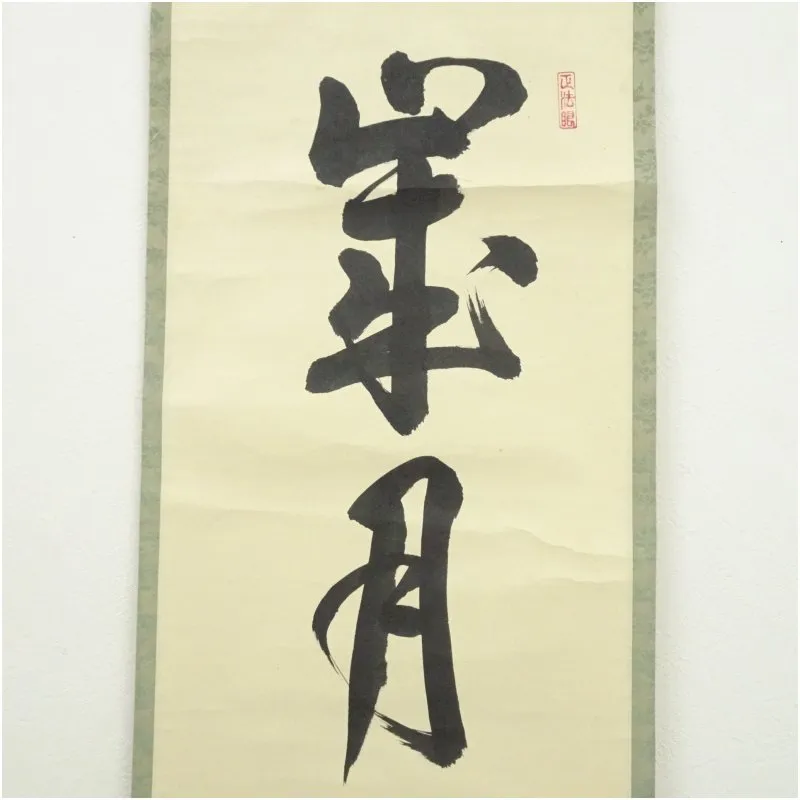 正法眼
歳月